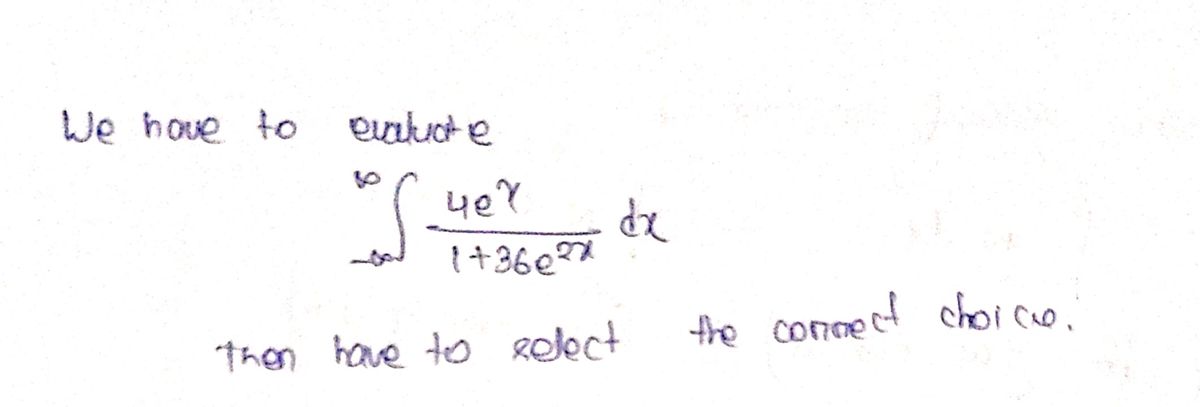 We have to evaluate
∞∫-∞ 4e^x / 1+36e^2x dx
then have to select the correct choice.